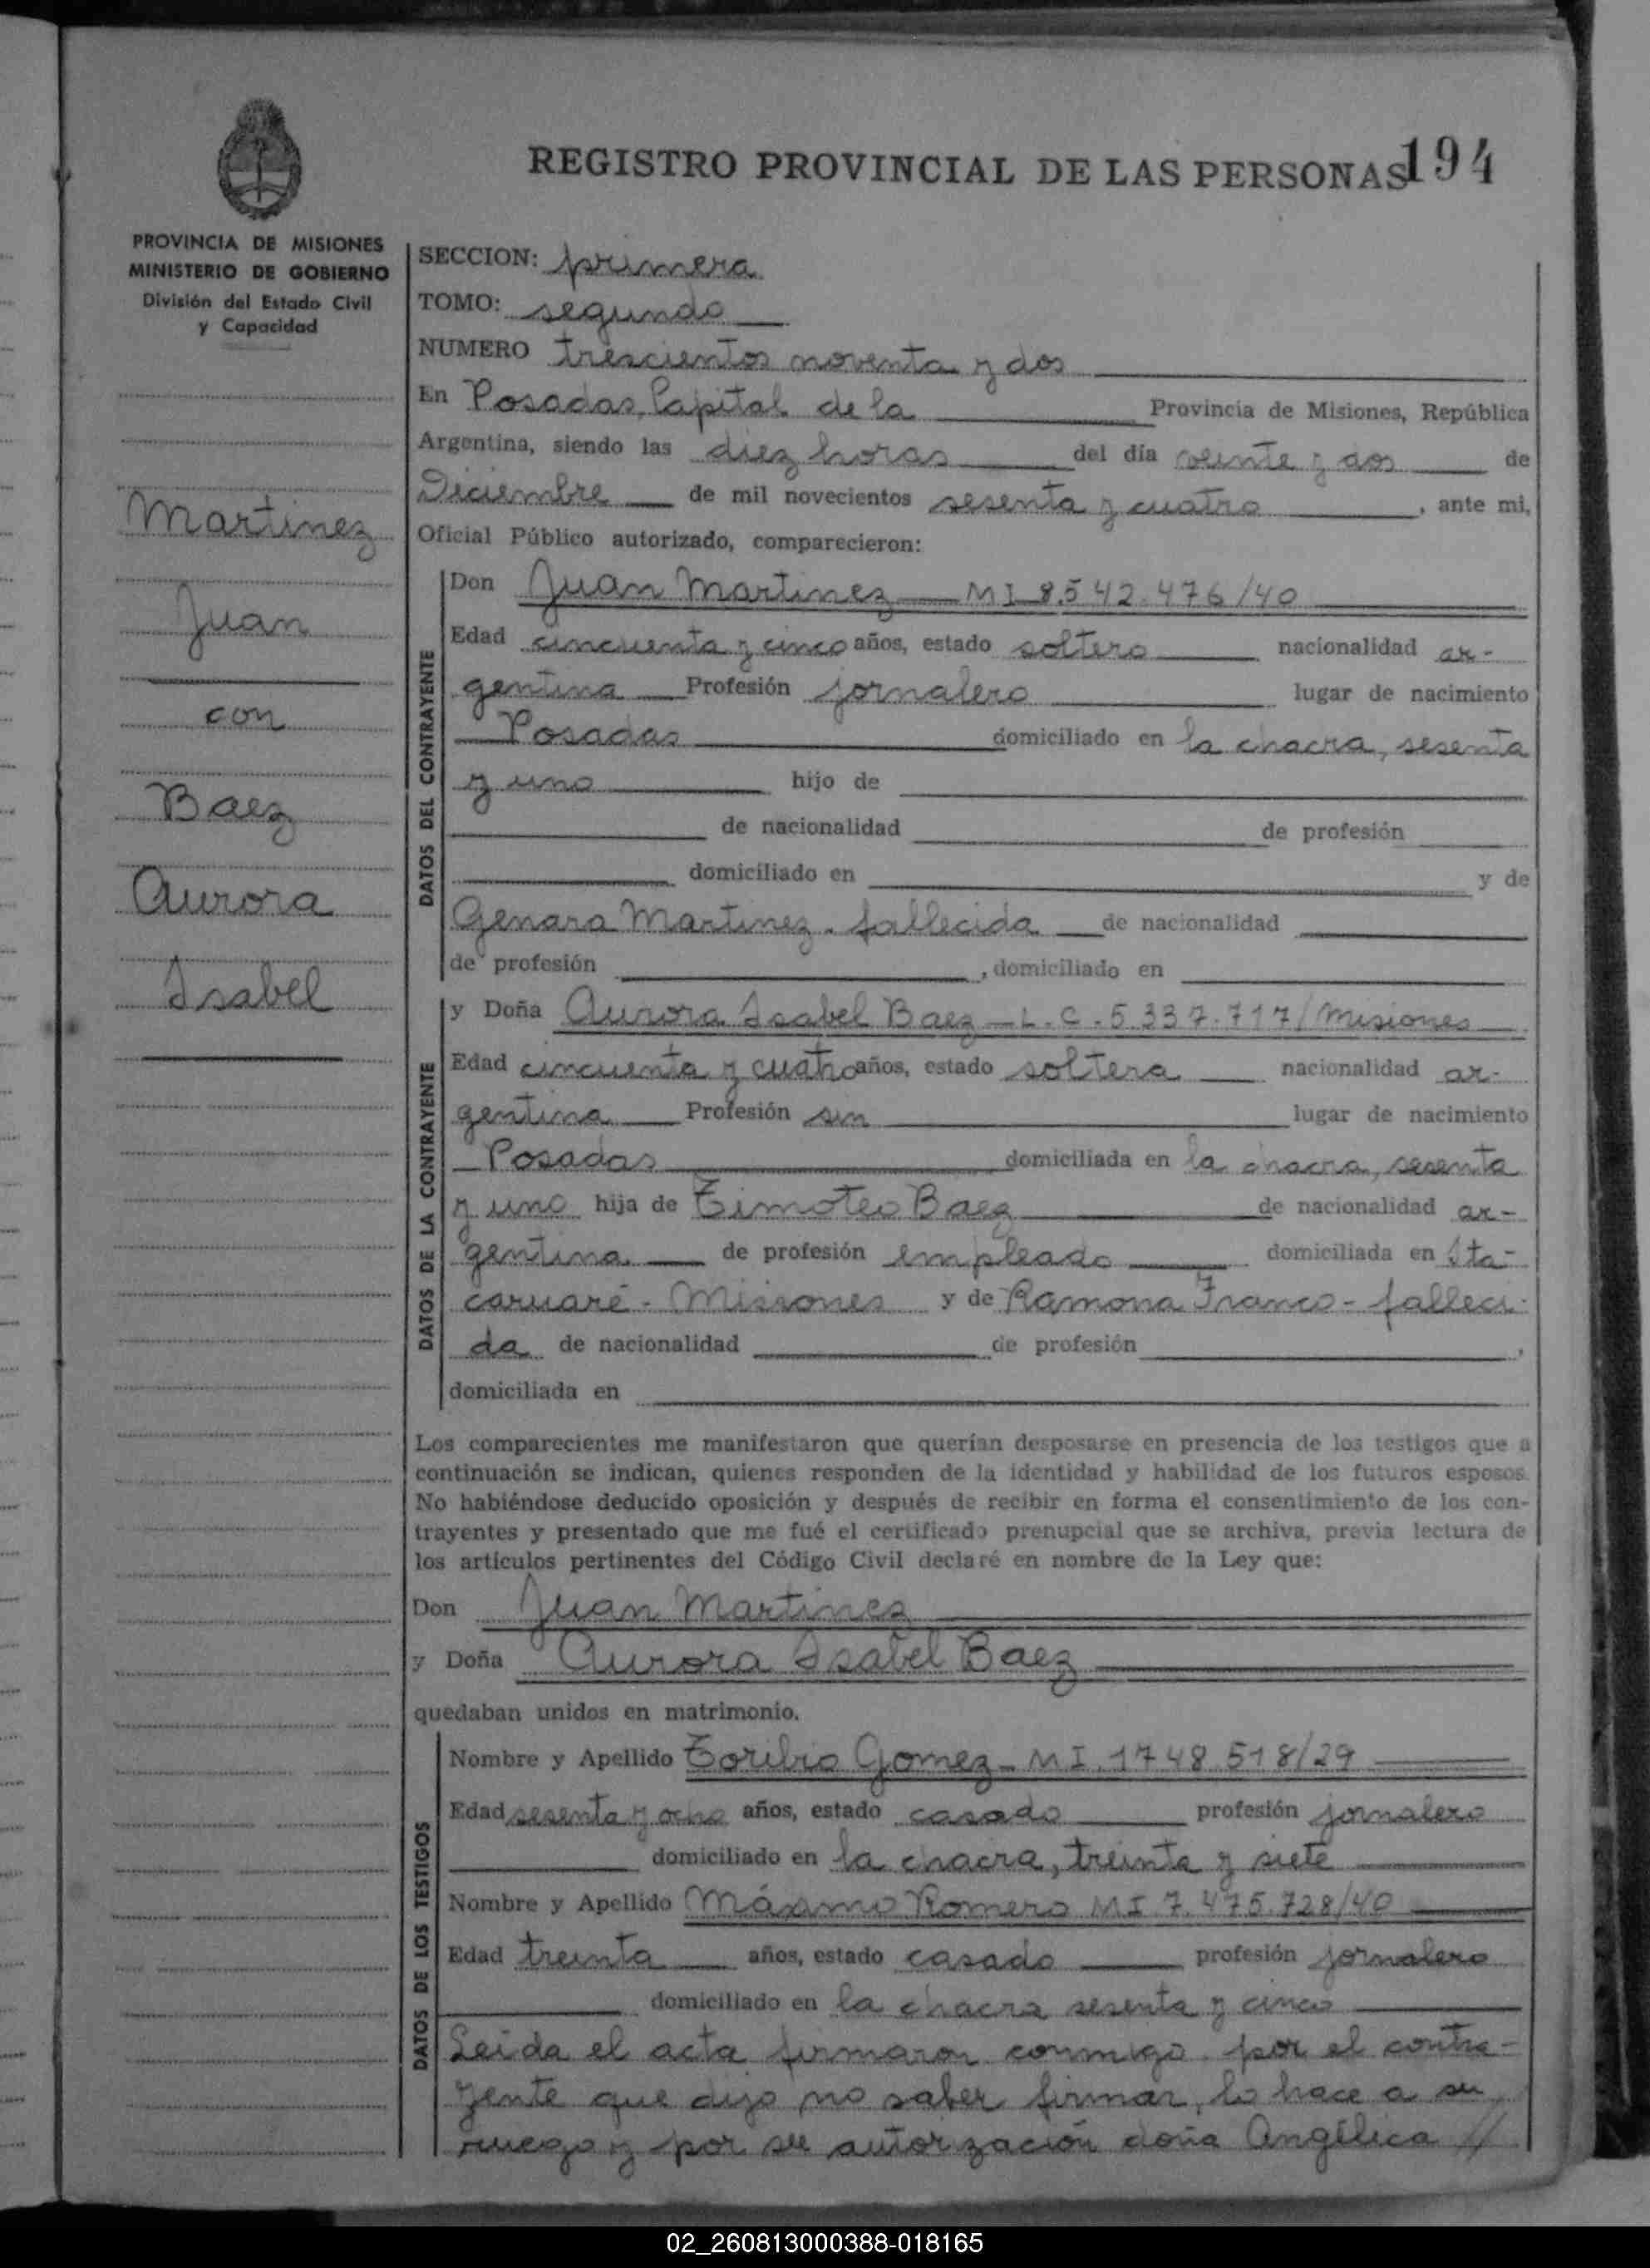 REGISTRO PROVINCIAL DE LAS PERSONAS 194
PROVINCIA DE MISIONES
MINISTERIO DE GOBIERNO
División del Estado Civil
y Capacidad
Martinez
Juan
con
Baez
Aurora
Isabel
SECCION: primera
TOMO: segundo
NUMERO trescientos noventa y dos
En Posadas, Capital de la Provincia de Misiones, República
Argentina, siendo las diez horas del día veinte y dos de
Diciembre de mil novecientos sesenta y cuatro, ante mi,
Oficial Público autorizado, comparecieron:
DATOS DEL CONTRAYENTE
Don Juan Martinez — MI 8.542.476/40
Edad cincuenta y cinco años, estado soltero nacionalidad ar-
gentina Profesión jornalero lugar de nacimiento
Posadas domiciliado en la chacra, sesenta
y uno hijo de
de nacionalidad de profesión
domiciliado en y de
Genara Martinez - fallecida de nacionalidad
de profesión , domiciliado en
DATOS DE LA CONTRAYENTE
y Doña Aurora Isabel Baez — L.C. 5.337.717/Misiones
Edad cincuenta y cuatro años, estado soltera nacionalidad ar-
gentina Profesión sin lugar de nacimiento
Posadas domiciliada en la chacra, sesenta
y uno hija de Timoteo Baez de nacionalidad ar-
gentina de profesión empleado domiciliada en Ita-
caruaré - Misiones y de Ramona Franco - falleci-
da de nacionalidad de profesión ,
domiciliada en
Los comparecientes me manifestaron que querían desposarse en presencia de los testigos que a
continuación se indican, quienes responden de la identidad y habilidad de los futuros esposos.
No habiéndose deducido oposición y después de recibir en forma el consentimiento de los con-
trayentes y presentado que me fué el certificado prenupcial que se archiva, previa lectura de
los artículos pertinentes del Código Civil declaré en nombre de la Ley que:
Don Juan Martinez
y Doña Aurora Isabel Baez
quedaban unidos en matrimonio.
DATOS DE LOS TESTIGOS
Nombre y Apellido Toribio Gomez - MI. 1748.518/29
Edad sesenta y ocho años, estado casado profesión jornalero
domiciliado en la chacra, treinta y siete
Nombre y Apellido Máximo Romero MI 7.475.728/40
Edad treinta años, estado casado profesión jornalero
domiciliado en la chacra sesenta y cinco
Leida el acta firmaron conmigo por el contra-
yente que dijo no saber firmar, lo hace a su
ruego y por su autorización doña Angélica //
02_260813000388-018165